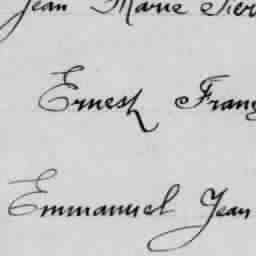 Jean Marie Pier
Ernest Franç
Emmanuel Jean